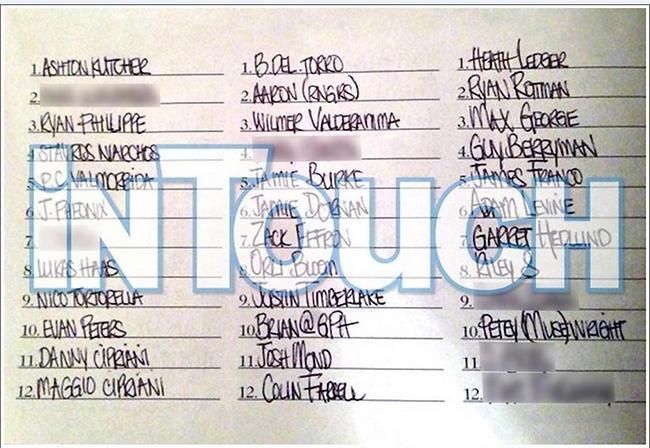 1. ASHTON KUTCHER
2.
3. RYAN PHILLIPPE
4. STAVROS NIARCHOS
5. P.C. VALMORBIDA
6. J. PHEONIX
7.
8. LUKAS HAAS
9. NICO TORTORELLA
10. EVAN PETERS
11. DANNY CIPRIANI
12. MAGGIO CIPRIANI
1. B. DEL TORRO
2. AARON (RNGRS)
3. WILMER VALDERAMMA
4.
5. JAMIE BURKE
6. JAMIE DORNAN
7. ZACK EFFRON
8. ORLI BLOOM
9. JUSTIN TIMBERLAKE
10. BRIAN@GPH
11. JOSH MOND
12. COLIN FARRELL
1. HEATH LEDGER
2. RYAN ROTTMAN
3. MAX GEORGE
4. GUY BERRYMAN
5. JAMES FRANCO
6. ADAM LEVINE
7. GARRET HEDLUND
8. RILEY S
9.
10. PETEY (MUSE) WRIGHT
11.
12.
INTOUCH